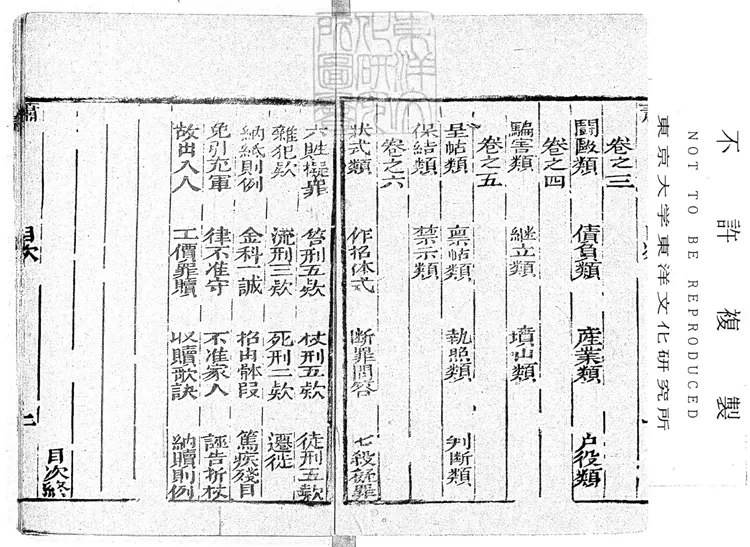 不許複製
NOT TO BE REPRODUCED
東京大学東洋文化研究所
卷之三
鬪毆類 債負類 産業類 户役類
卷之四
騙害類 継立類 墳山類
卷之五
呈帖類 禀帖類 執照類 判断類
保結類 禁示類
卷之六
狀式類 作招体式 断罪問答 七殺擬罪
六賍擬罪 笞刑五欵 杖刑五欵 徒刑五欵
雜犯欵 流刑三欵 死刑二欵 遷徙
納紙則例 金科一誠 招由骵叚 篤疾殘目
免引充軍 律不准守 不准家人 誣告折杖
故出入人 工價罪贖 収贖歌訣 納贖則例
目次終
目次